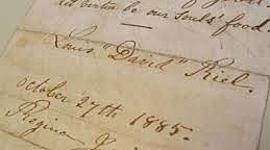 be our souls' food.
Louis "David" Riel.
October 27th 1885.
Regina